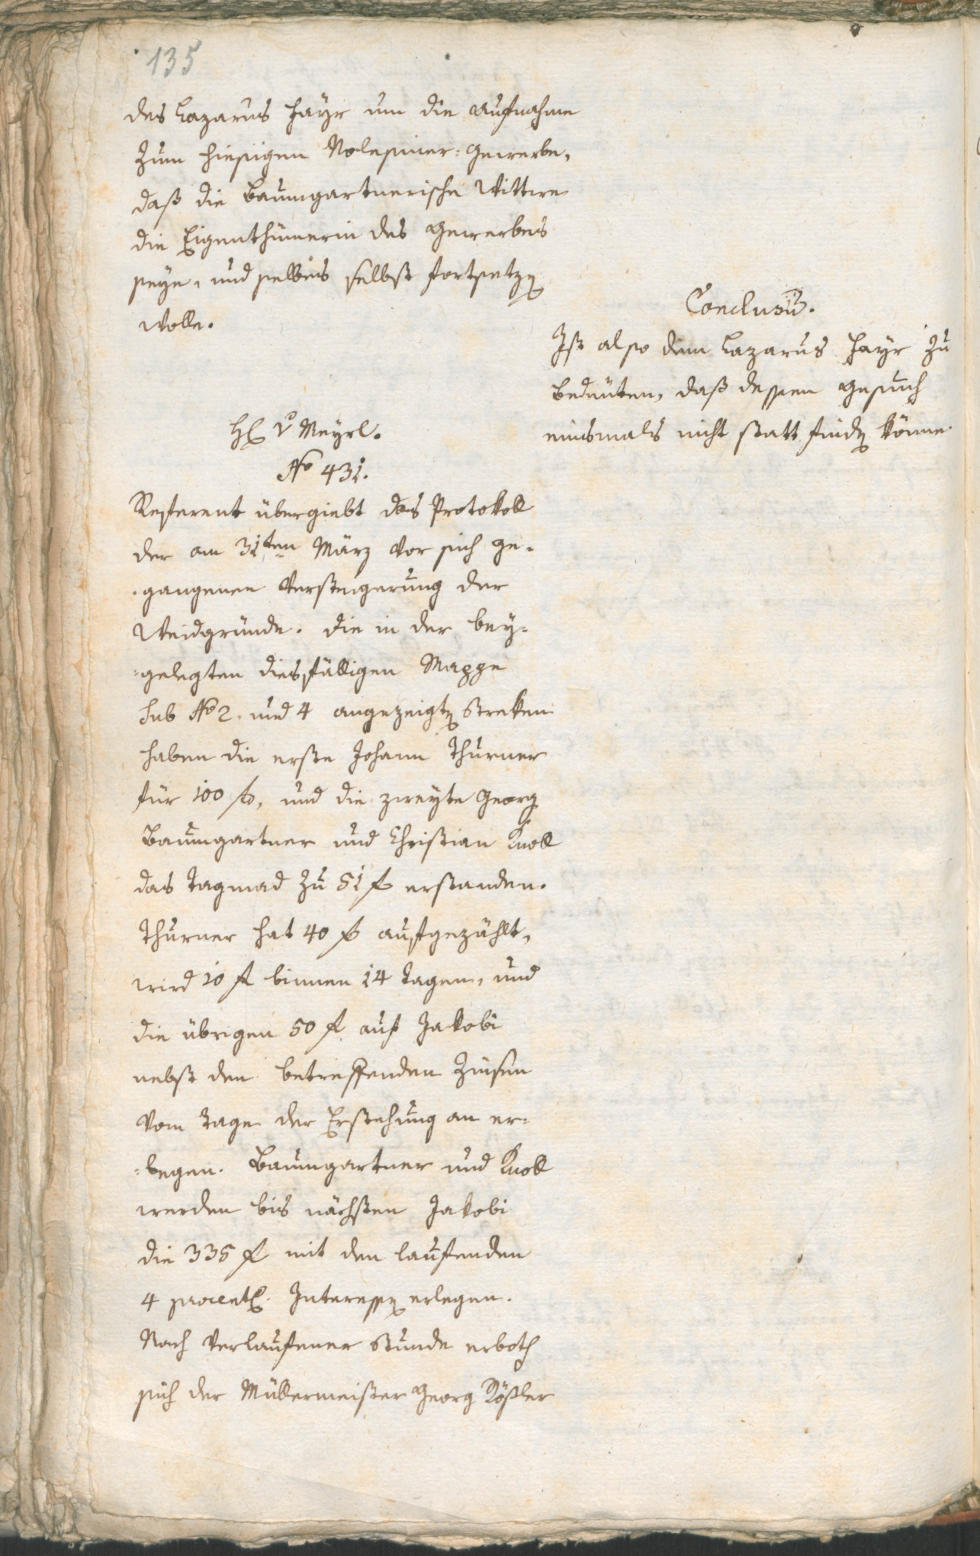 135
des Lazarus Hayr um die Aufnahme
zum hiesigen Melesiner-Gewerbe,
daß die Baumgartnerische Wittwe
die Eigenthümerin des Gewerbes
seye, und selbes selbst fortsetzen
wolle.
Conclusum.
Ist also dem Lazarus Hayr zu
bedeuten, daß dessen Gesuch
einsmals nicht statt finden könne.
H. v. Meyrl.
No 431.
Referent übergiebt das Protokoll
der am 31ten März vor sich ge-
gangenen Versteigerung der
Weidgründe. Die in der bey-
gelegten diesfälligen Mappe
sub No 2. und 4 angezeigten Streken
haben die erste Johann Thurner
für 100 f, und die zweyte Georg
Baumgartner und Christian Knoll
das Tagmad zu 51 f erstanden.
Thurner hat 40 f aufgezählt,
wird 10 f binnen 14 Tagen, und
die übrigen 50 f auf Jakobi
nebst den betreffenden Zinsen
vom Tage der Erstehung an er-
legen. Baumgartner und Knoll
werden bis nächsten Jakobi
die 335 f mit den laufenden
4 procent. Interessen erlegen.
Nach verlaufener Stunde erboth
sich der Müllermeister Georg Rößler